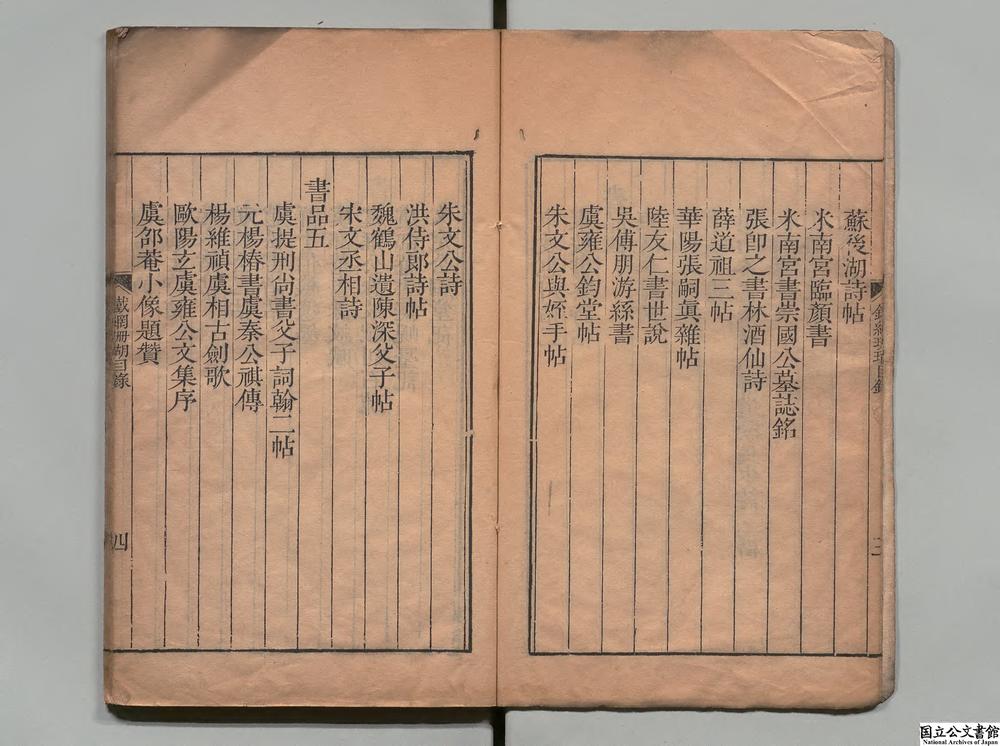 蘇後湖詩帖
米南宮臨顔書
米南宮書崇國公墓誌銘
張卽之書林酒仙詩
薛道祖三帖
華陽張嗣眞雜帖
陸友仁書世說
吳傅朋游絲書
虞雍公鈞堂帖
朱文公與姪手帖
三
朱文公詩
洪侍郞詩帖
魏鶴山遺陳深父子帖
宋文丞相詩
書品五
虞提刑尙書父子詞翰二帖
元楊椿書虞秦公祺傳
楊維禎虞相古劍歌
歐陽玄虞雍公文集序
虞邵菴小像題贊
鐵網珊瑚目錄
四
国立公文書館
National Archives of Japan